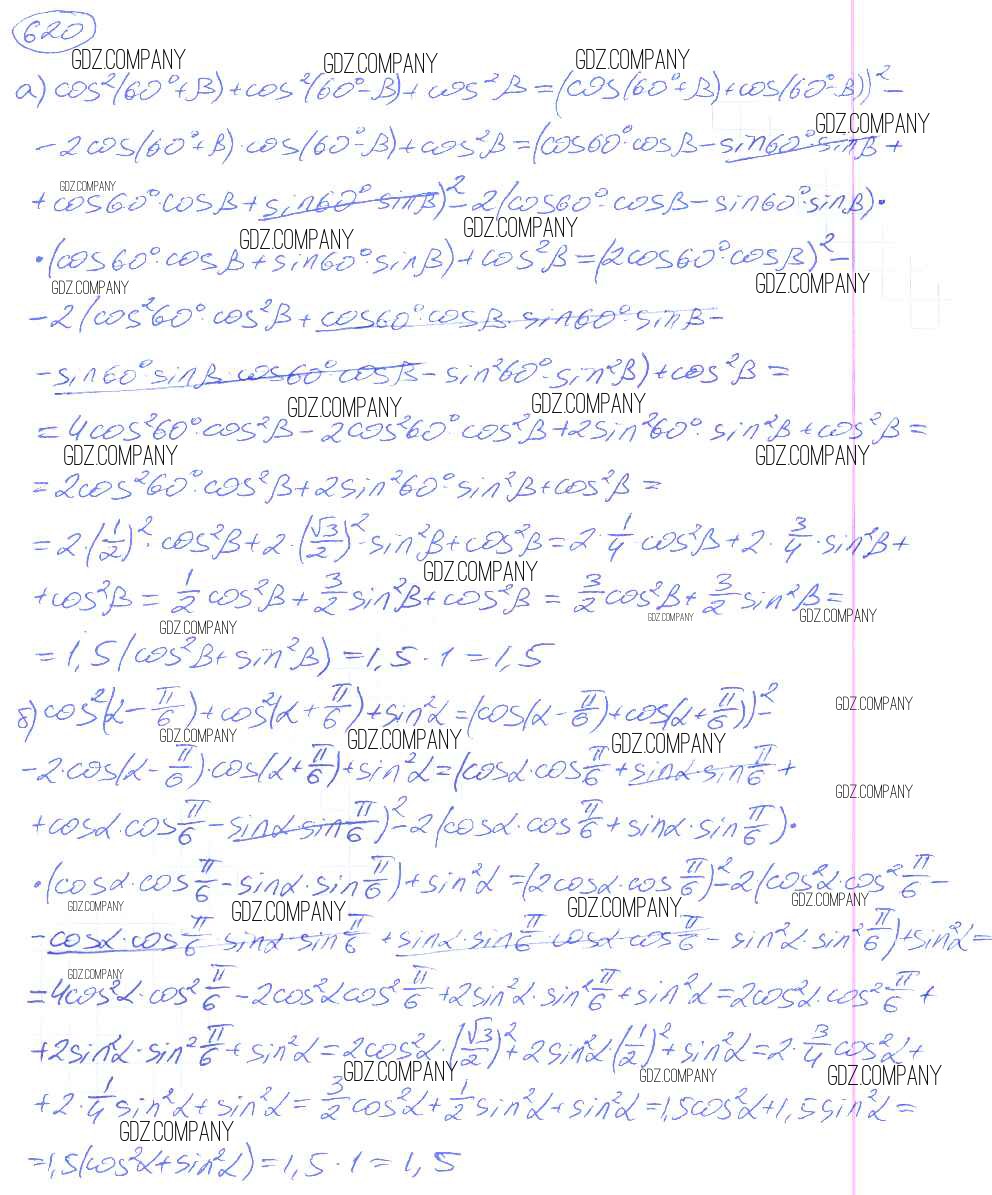 620
GDZ.COMPANY GDZ.COMPANY GDZ.COMPANY
а) cos²(60°+β)+cos²(60°-β)+cos²β=(cos(60°+β)+cos(60°-β))²-
GDZ.COMPANY
-2cos(60°+β)·cos(60°-β)+cos²β=(cos60°·cosβ-sin60°sinβ+
GDZ.COMPANY
+cos60°·cosβ+sin60°·sinβ)²-2(cos60°·cosβ-sin60°·sinβ)·
GDZ.COMPANY GDZ.COMPANY
·(cos60°·cosβ+sin60°sinβ)+cos²β=(2cos60°·cosβ)²-
GDZ.COMPANY GDZ.COMPANY
-2(cos²60°·cos²β+cos60°·cosβ·sin60°·sinβ-
-sin60°sinβ·cos60°cosβ-sin²60°·sin²β)+cos²β=
GDZ.COMPANY GDZ.COMPANY
=4cos²60°·cos²β-2cos²60°·cos²β+2sin²60°·sin²β+cos²β=
GDZ.COMPANY GDZ.COMPANY
=2cos²60°·cos²β+2sin²60°·sin²β+cos²β=
=2·(1/2)²·cos²β+2·(√3/2)²·sin²β+cos²β=2·1/4·cos²β+2·3/4·sin²β+
GDZ.COMPANY
+cos²β=1/2cos²β+3/2sin²β+cos²β=3/2cos²β+3/2sin²β=
GDZ.COMPANY GDZ.COMPANY GDZ.COMPANY
=1,5(cos²β+sin²β)=1,5·1=1,5
б) cos²(α-π/6)+cos²(α+π/6)+sin²α=(cos(α-π/6)+cos(α+π/6))²-
GDZ.COMPANY
GDZ.COMPANY GDZ.COMPANY GDZ.COMPANY
-2·cos(α-π/6)·cos(α+π/6)+sin²α=(cosα·cosπ/6+sinα·sinπ/6+
GDZ.COMPANY
+cosα·cosπ/6-sinα·sinπ/6)²-2(cosα·cosπ/6+sinα·sinπ/6)·
·(cosα·cosπ/6-sinα·sinπ/6)+sin²α=(2cosα·cosπ/6)²-2(cos²α·cos²π/6-
GDZ.COMPANY GDZ.COMPANY GDZ.COMPANY GDZ.COMPANY
-cosα·cosπ/6·sinα·sinπ/6+sinα·sinπ/6·cosα·cosπ/6-sin²α·sin²π/6)+sin²α=
GDZ.COMPANY
=4cos²α·cos²π/6-2cos²αcos²π/6+2sin²α·sin²π/6+sin²α=2cos²α·cos²π/6+
+2sin²α·sin²π/6+sin²α=2cos²α·(√3/2)²+2sin²α·(1/2)²+sin²α=2·3/4cos²α+
GDZ.COMPANY GDZ.COMPANY GDZ.COMPANY
+2·1/4sin²α+sin²α=3/2cos²α+1/2sin²α+sin²α=1,5cos²α+1,5sin²α=
GDZ.COMPANY
=1,5(cos²α+sin²α)=1,5·1=1,5